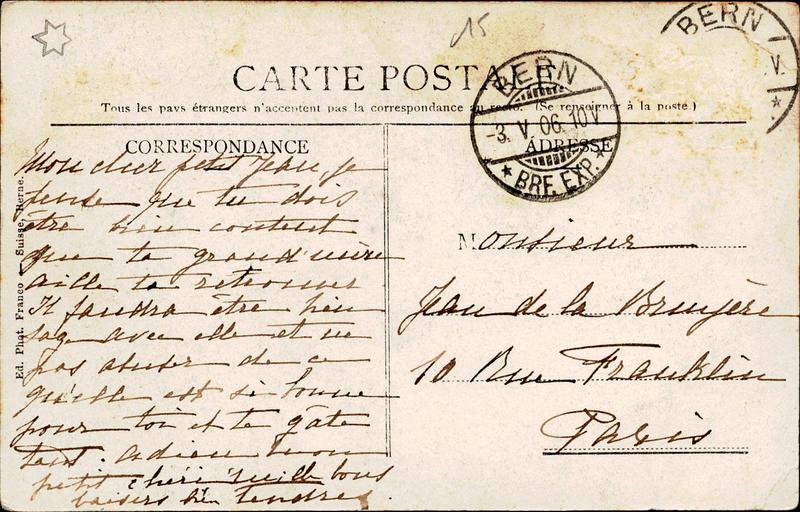 15
BERN
V.
CARTE POSTALE
BERN
-3. V. 06. 10V
BRF. EXP.
Tous les pays étrangers n'acceptent pas la correspondance au recto. (Se renseigner à la poste)
CORRESPONDANCE
ADRESSE
Ed. Phot. Franco - Suisse, Berne.
Mon cher petit Jean, je
pense que tu dois
être bien content
que ta grand'mère
aille te retrouver
Il faudra être bien
sage avec elle et ne
pas abuser de ce
qu'elle est si bonne
pour toi et te gâte
tant. Adieu mon
petit chéri mille bons
baisers bien tendres.
Monsieur
Jean de la Bruyère
10 Rue Franklin
Paris